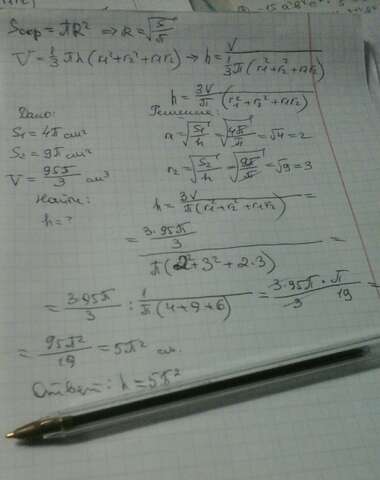 Sокр = πR² ⇒ R = √S/π
V = 1/3 πh (r₁² + r₂² + r₁r₂) → h = V / 1/3 π (r₁² + r₂² + r₁r₂)
h = 3V / π (r₁² + r₂² + r₁r₂)
Дано:
S₁ = 4π см²
S₂ = 9π см²
V = 95π/3 см³
Найти:
h = ?
Решение:
r₁ = √S₁/π = √4π/π = √4 = 2
r₂ = √S₂/π = √9π/π = √9 = 3
h = 3V / π (r₁² + r₂² + r₁r₂) =
= 3·95π/3 / π (2² + 3² + 2·3) =
= 3·95π/3 : 1/π (4+9+6) = 3·95π · π / 3 19 =
= 95π²/19 = 5π² см.
Ответ: h = 5π²